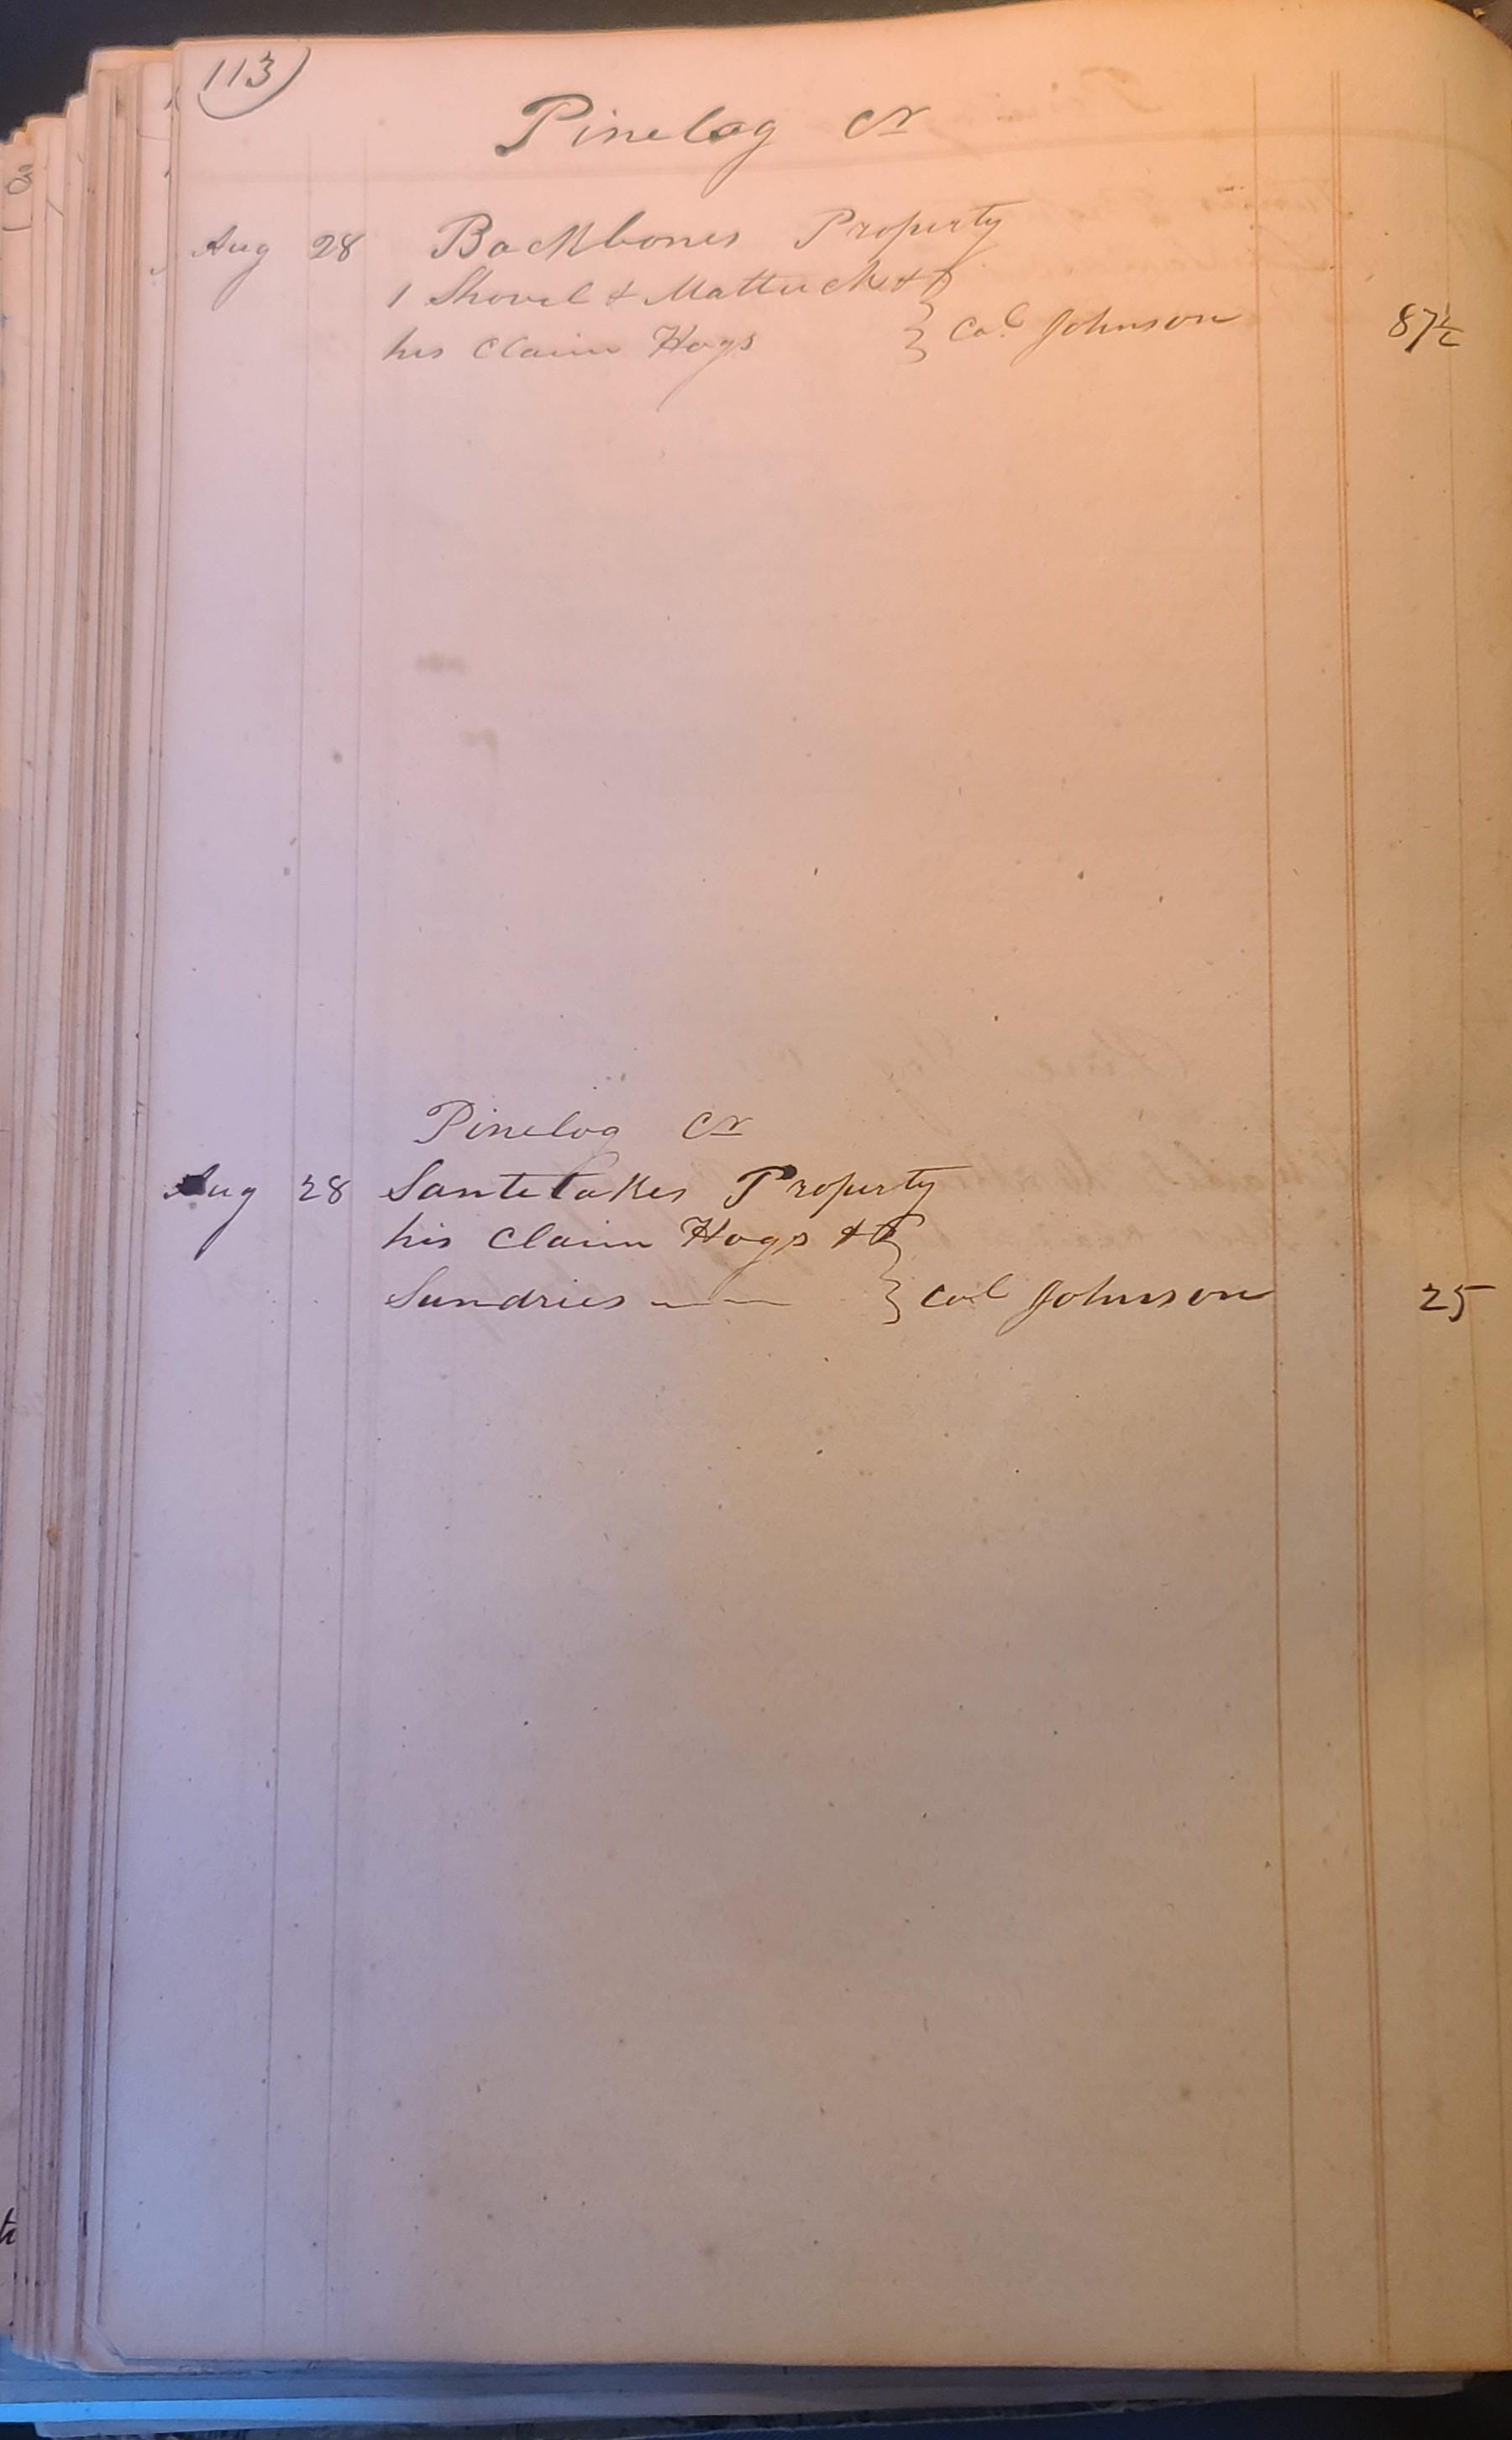 113
Pinelog Cr
Aug 28 Backbones Property
1 Shovel & Mattuck + }
his Claim Hogs } Col Johnson 87½
Pinelog Cr
Aug 28 Santetakes Property
his Claim Hogs & }
Sundries — — } Col Johnson 25